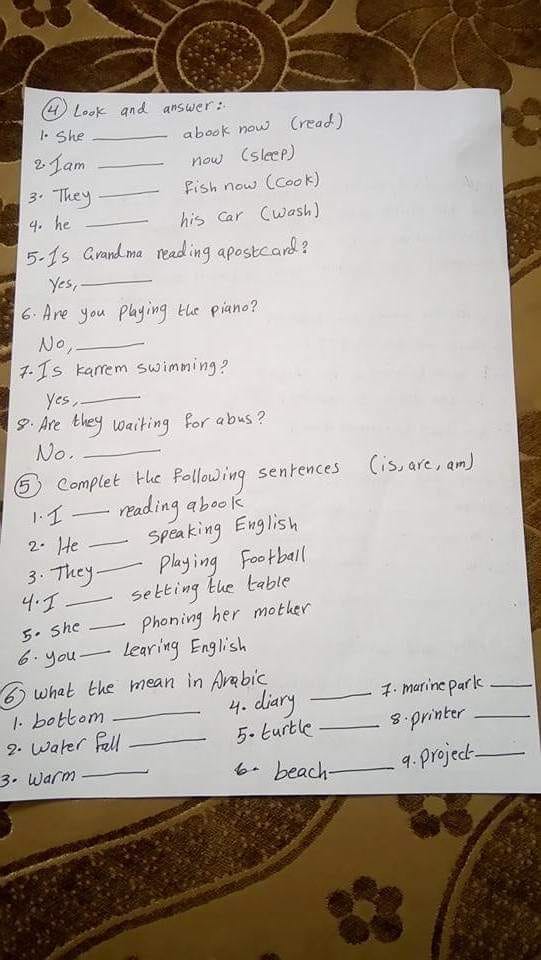 ④ Look and answer:.
1. She ______ abook now (read)
2. I am ______ now (sleep)
3. They ______ fish now (Cook)
4. he ______ his car (wash)
5-Is Grandma reading apostcard?
Yes, ______
6. Are you playing the piano?
No, ______
7. Is Karrem swimming?
Yes, ______
8. Are they waiting for abus?
No. ______
⑤ Complet the following sentences (is, are, am)
1. I ____ reading abook
2. He ____ speaking English
3. They ____ Playing Football
4. I ____ setting the table
5. She ____ phoning her mother
6. you ____ learing English
⑥ what the mean in Arabic
1. bottom ______ 4. diary ______ 7. marine park ______
2. water fall ______ 5. turtle ______ 8. printer ______
3. warm ______ 6. beach ______ 9. project ______